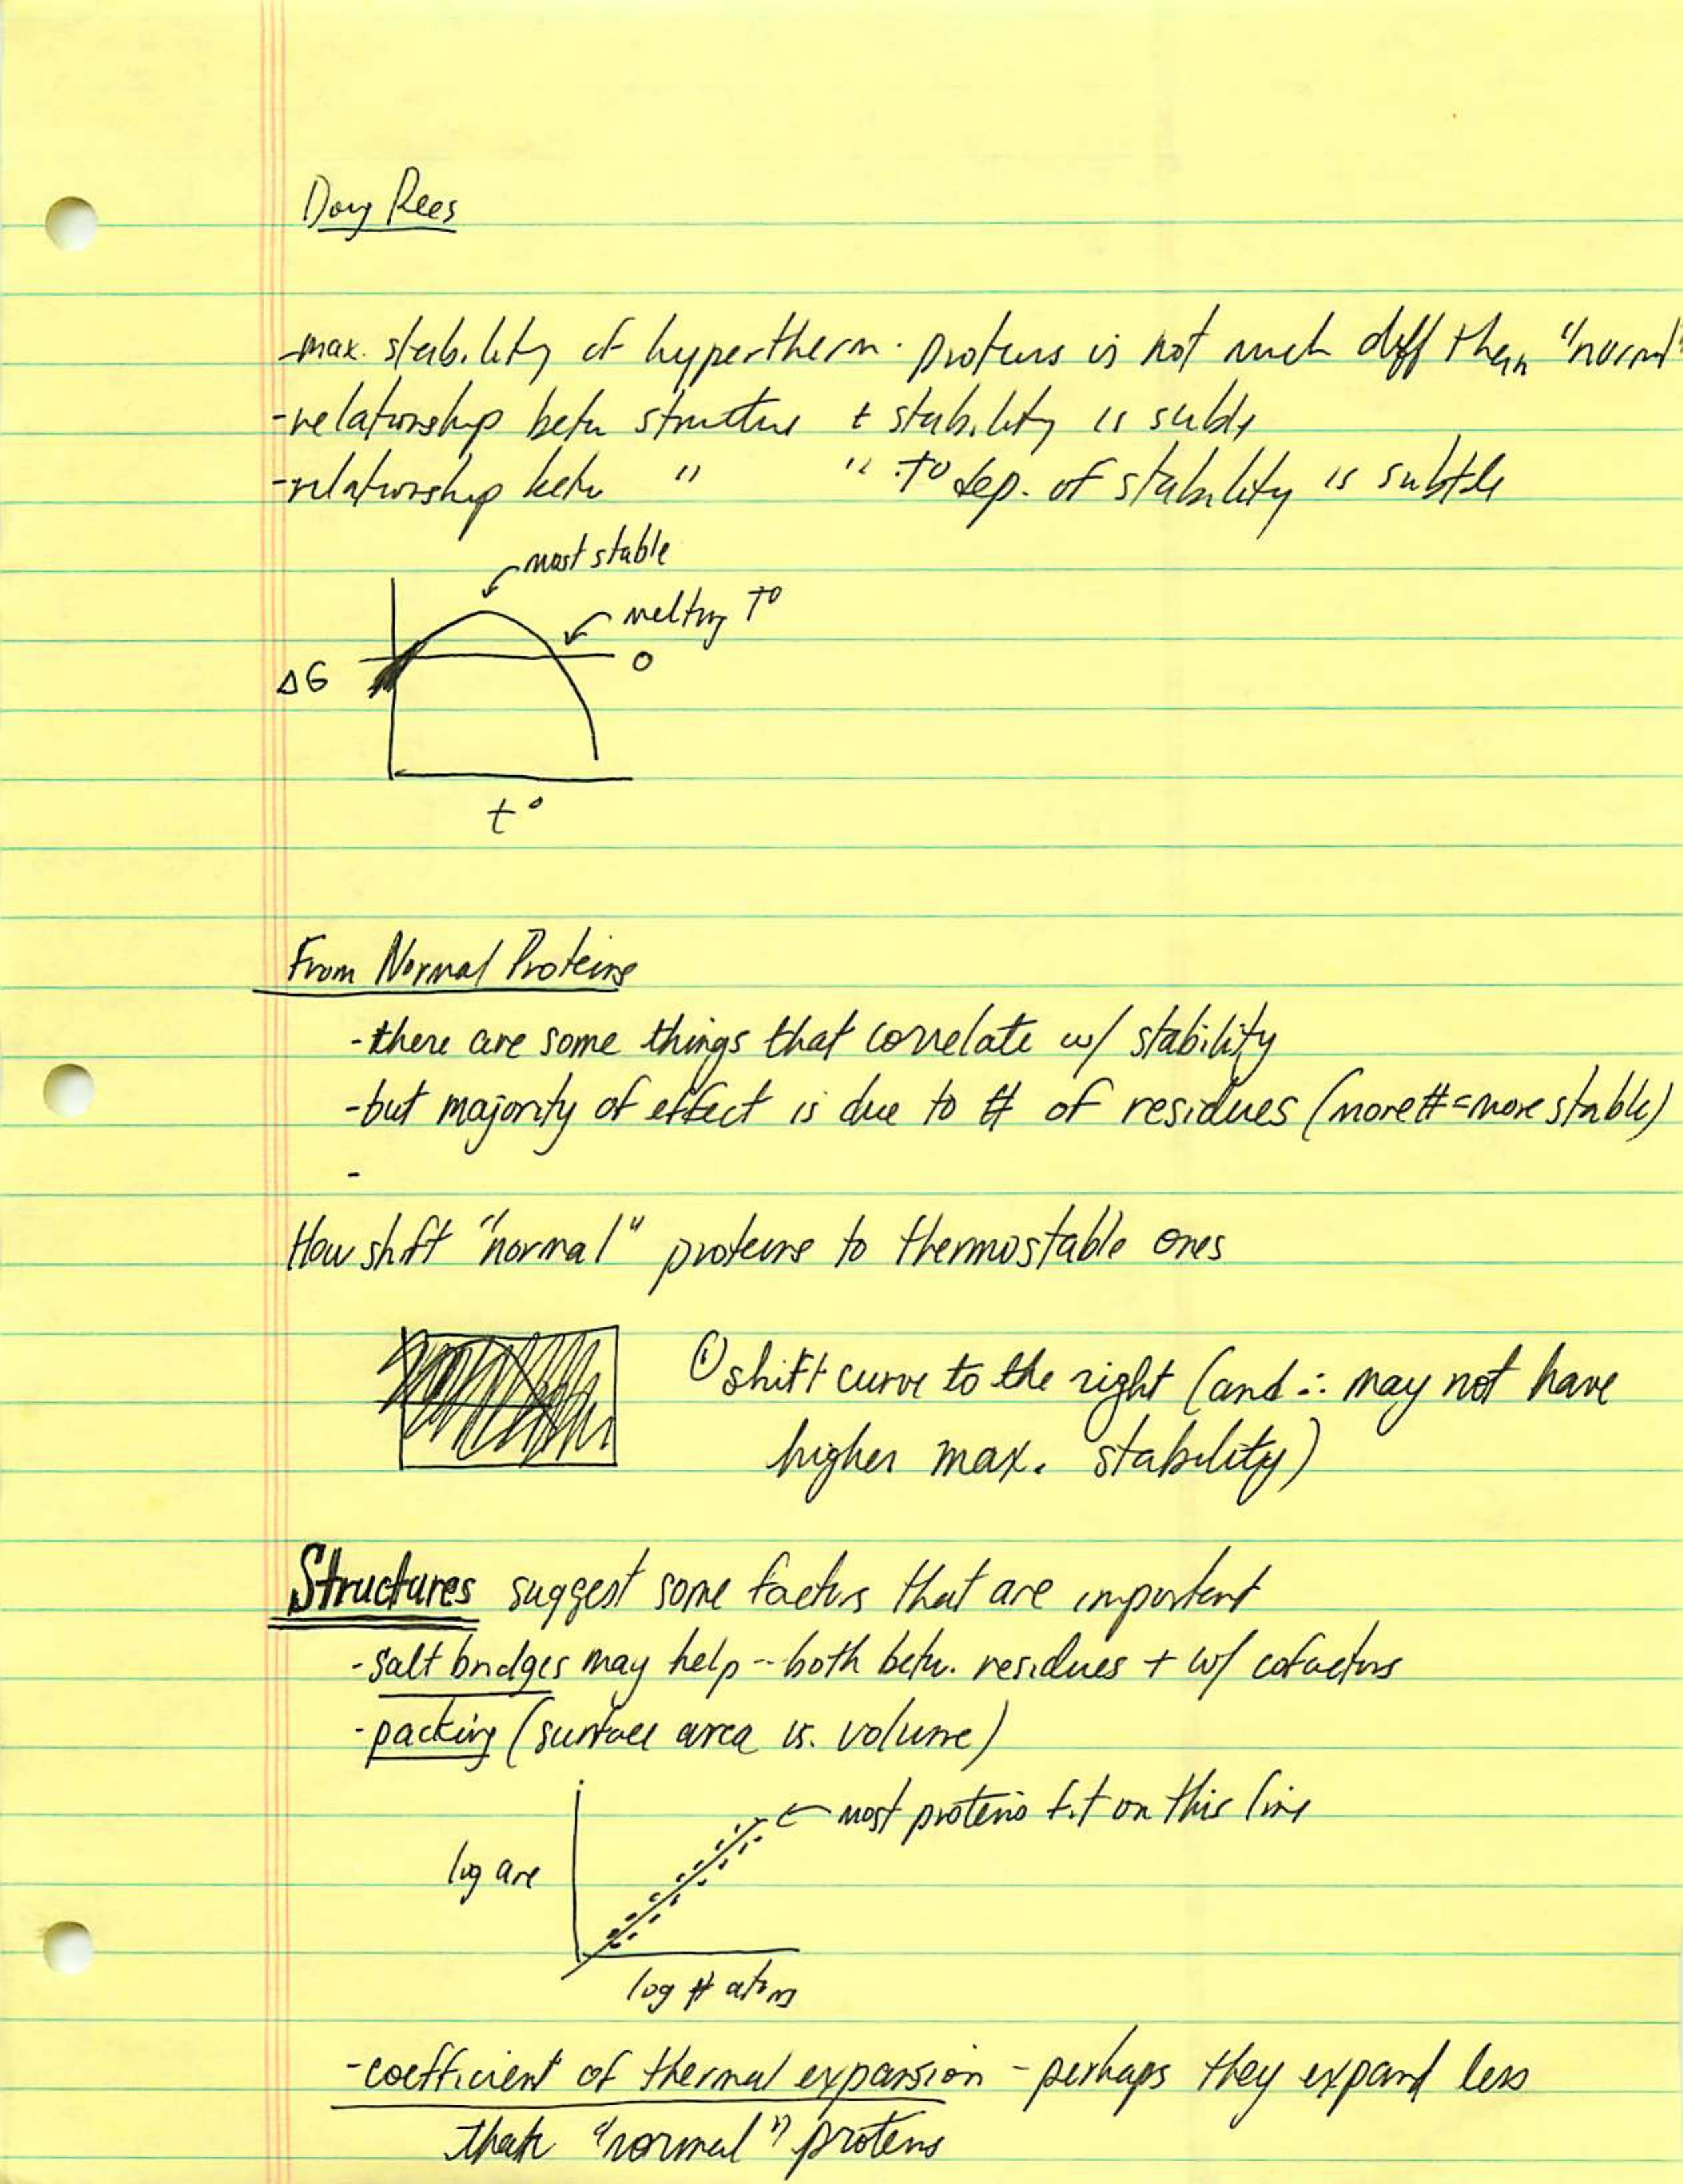 Doug Rees
-max. stability of hypertherm. proteins is not much diff than "normal"
-relationship betw structure + stability is subtle
-relationship betw " " T° dep. of stability is subtle
most stable
melting T°
0
ΔG
t°
From Normal Proteins
-there are some things that correlate w/ stability
-but majority of effect is due to # of residues (more # = more stable)
-
How shift "normal" proteins to thermostable ones
① shift curve to the right (and ∴ may not have
higher max. stability)
Structures suggest some factors that are important
-salt bridges may help -- both betw. residues + w/ cofactors
-packing (surface area vs. volume)
most proteins fit on this line
log are
log # atoms
-coefficient of thermal expansion - perhaps they expand less
than "normal" proteins